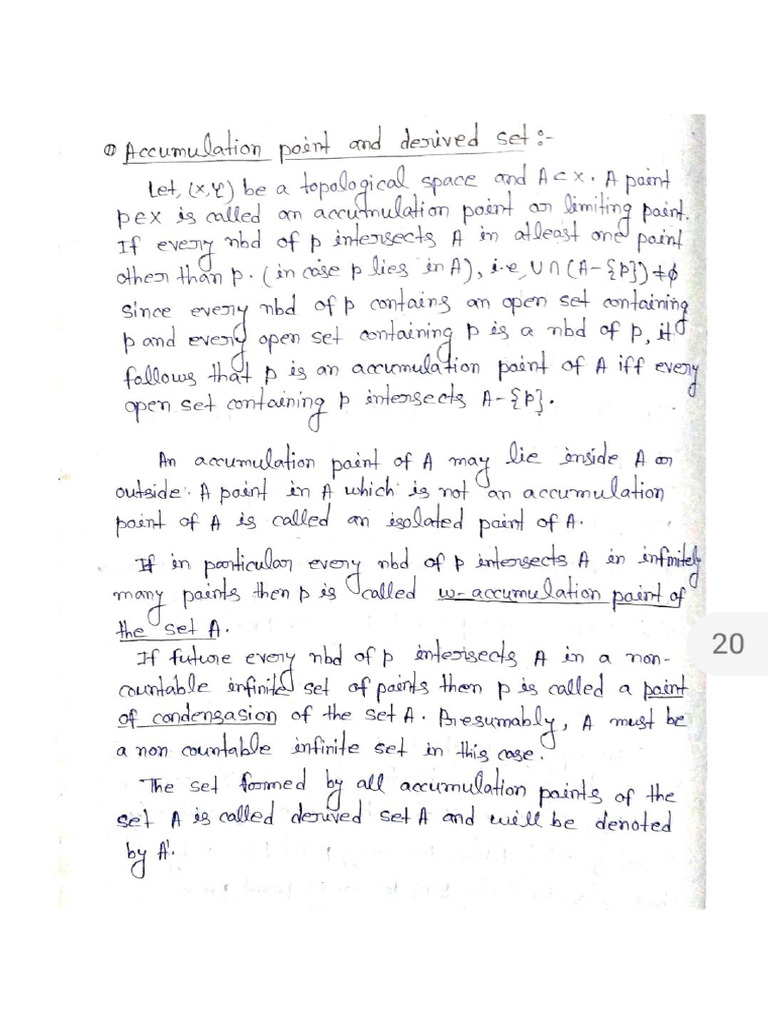 ① Accumulation point and derived set :-
Let, (X,φ) be a topological space and A⊂X. A point
p∈X is called an accumulation point or limiting point.
If every nbd of p intersects A in atleast one point
other than p. (in case p lies in A), i.e, U∩(A-{p})≠ϕ
since every nbd of p contains an open set containing
p and every open set containing p is a nbd of p, it
follows that p is an accumulation point of A iff every
open set containing p intersects A-{p}.
An accumulation point of A may lie inside A or
outside. A point in A which is not an accumulation
point of A is called an isolated point of A.
If in particular every nbd of p intersects A in infinitely
many points then p is called w-accumulation point of
the set A.
If future every nbd of p intersects A in a non-
countable infinite set of points then p is called a point
of condensasion of the set A. Presumably, A must be
a non countable infinite set in this case.
The set formed by all accumulation points of the
set A is called derived set A and will be denoted
by A'.
20